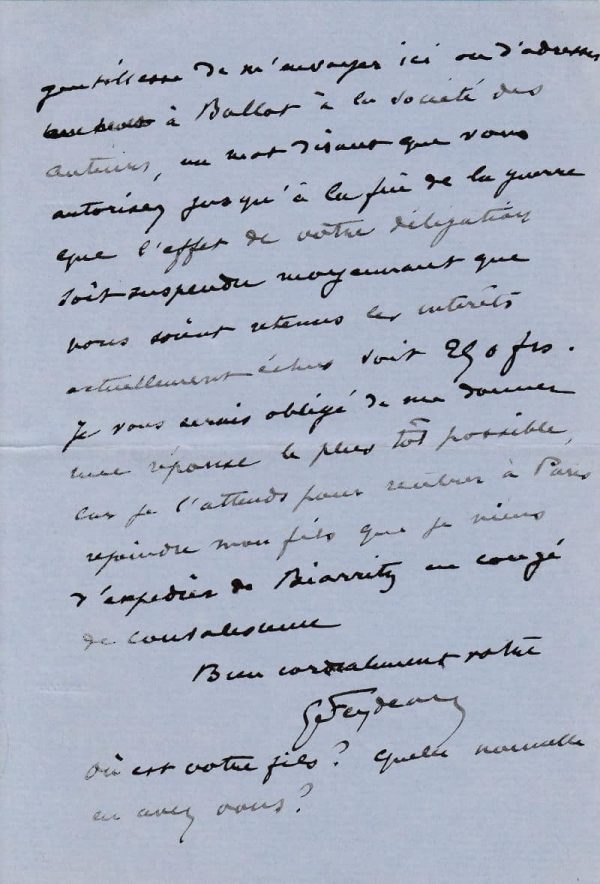 gentillesse de m'envoyer ici ou d'adresser
à Ballot à la société des
auteurs, un mot disant que vous
autorisez jusqu'à la fin de la guerre
que l'effet de votre délégation
soit suspendu moyennant que
vous soient retenus les intérêts
actuellement échus soit 250 frs.
Je vous serais obligé de me donner
une réponse le plus tôt possible,
car je l'attends pour rentrer à Paris
rejoindre mon fils que je viens
d'expédier de Biarritz en congé
de convalescence
Bien cordialement votre
G. Feydeau
Où est votre fils? Quelle nouvelle
en avez vous?